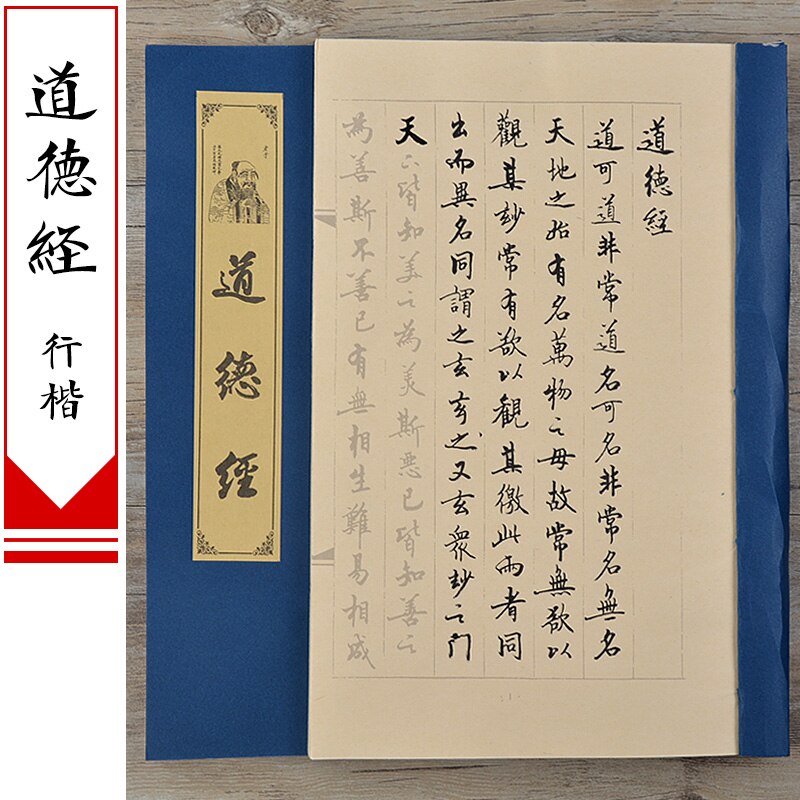 道德経
行楷
老子
道德經
道德経
道可道非常道名可名非常名無名
天地之始有名萬物之母故常無欲以
觀其妙常有欲以觀其徼此兩者同
出而異名同謂之玄玄之又玄衆妙之門
天下皆知美之為美斯惡已皆知善之
為善斯不善已有無相生難易相成